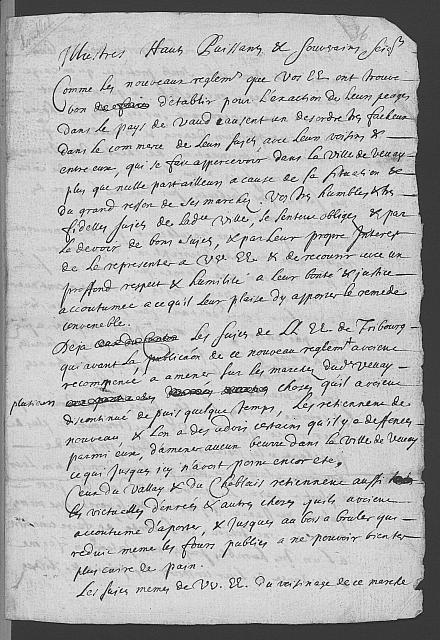 Illustres Hauts Puissants & Souverains Seigrs
Comme les nouveaux reglemts que Vos EE ont trouvé
bon d'etablir pour l'exaction de leurs peages
dans le pays de Vaud causent un desordre tres facheux
dans le commerce de leurs sujets avec leurs voisins &
entre eux, qui se fait appercevoir dans la Ville de Vevay
plus que nulle part ailleurs a cause de sa situation &
du grand ressor de ses marches. Vos tres humbles & tres
fidelles sujets de ladte Ville se sentent obliges & par
le devoir de bons sujets, & par leur propre Interest
de le representer a VV EE & de recourir avec un
proffond respect & humilité a leur bonté & justice
accoutumée a ce qu'il leur plaise d'y apporter le remede
convenable.
Deja les sujets de LL EE de Fribourg
qui avant la publicaon de ce nouveau reglemt avoient
recommencé a amener sur les marches du Vevay
plusieurs choses qu'il avoient
discontinué de puis quelque temps, les retiennent de
nouveau, & l'on a des avis certains qu'il y a deffences
parmi eux, d'amener aucun beurre dans la Ville de Vevay
ce qui jusques icy n'avoit point encor eté.
Ceux du Vallay & du Chablais retiennent aussi
les victuelles denrées & autres choses quils avoient
accoutumé d'aporter, & jusques au bois a bruler qui
reduit meme les fours publics a ne pouvoir bientot
plus cuire de pain.
Les sujets memes de VV. EE. du voisinage de ce marché